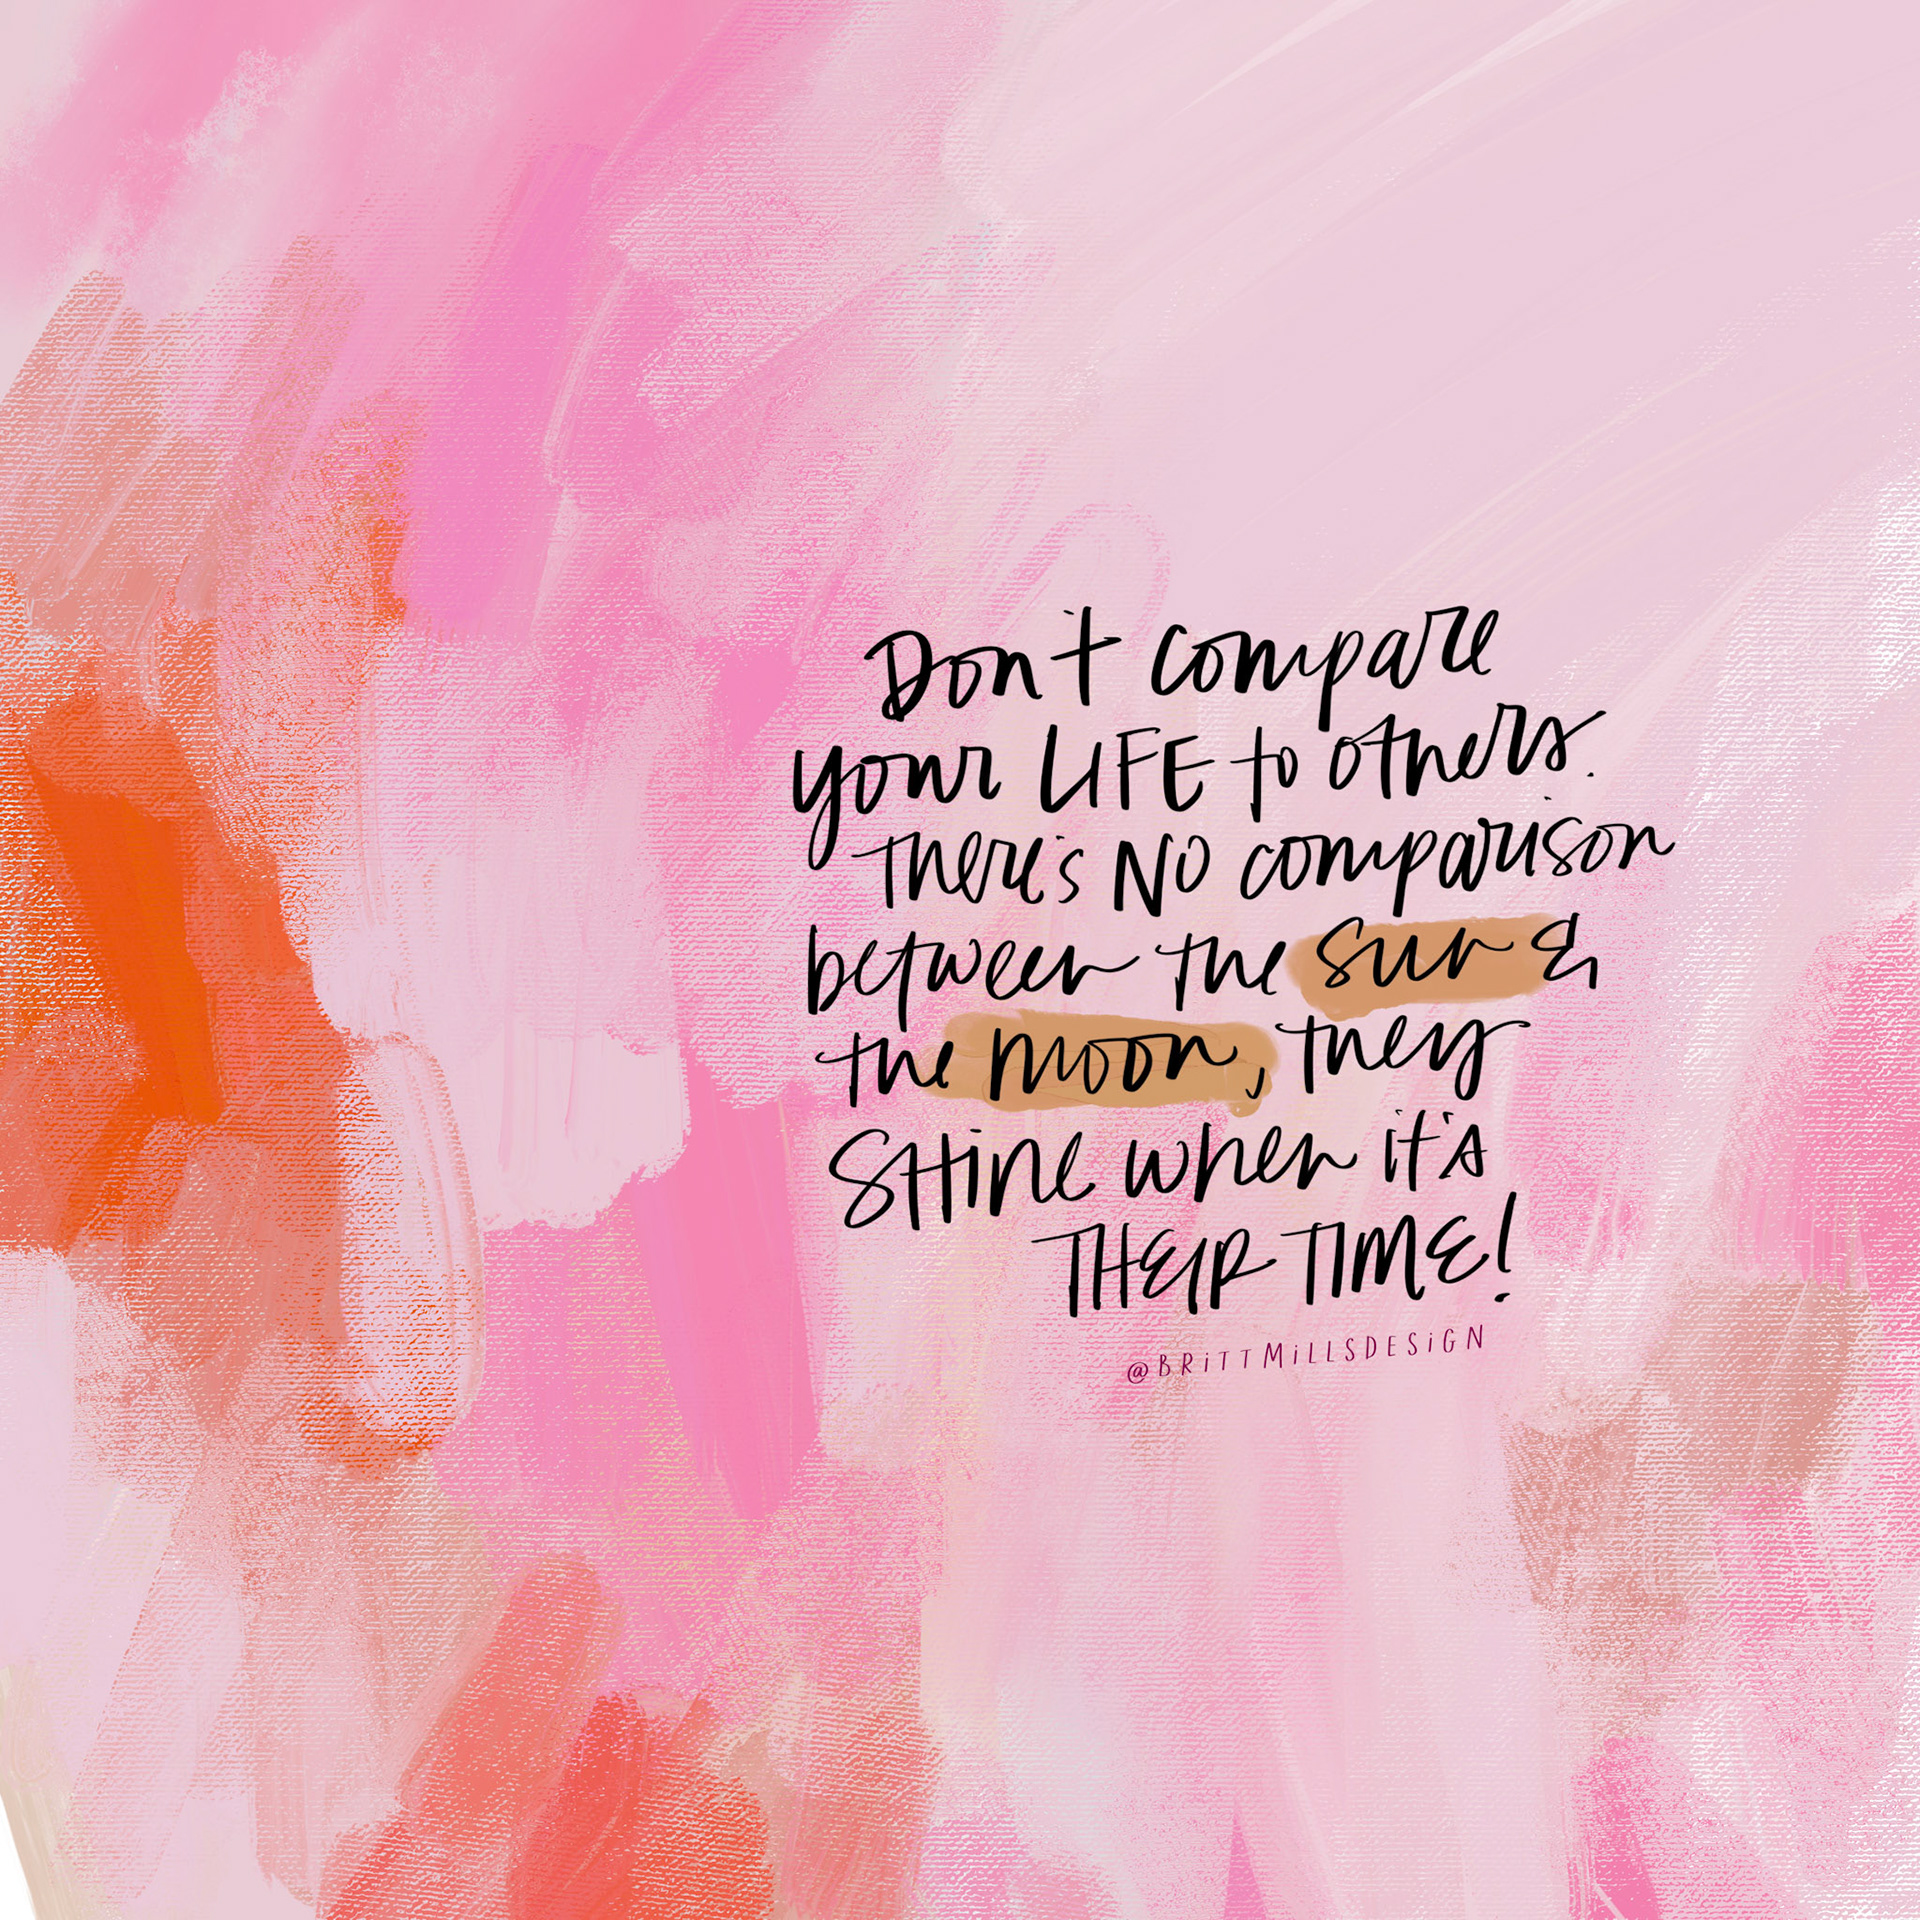 Don't compare
your LIFE to others.
There's NO comparison
between the sun &
the moon, they
SHine when it's
THEIR TIME!
@BRiTTMiLLSDESiGN